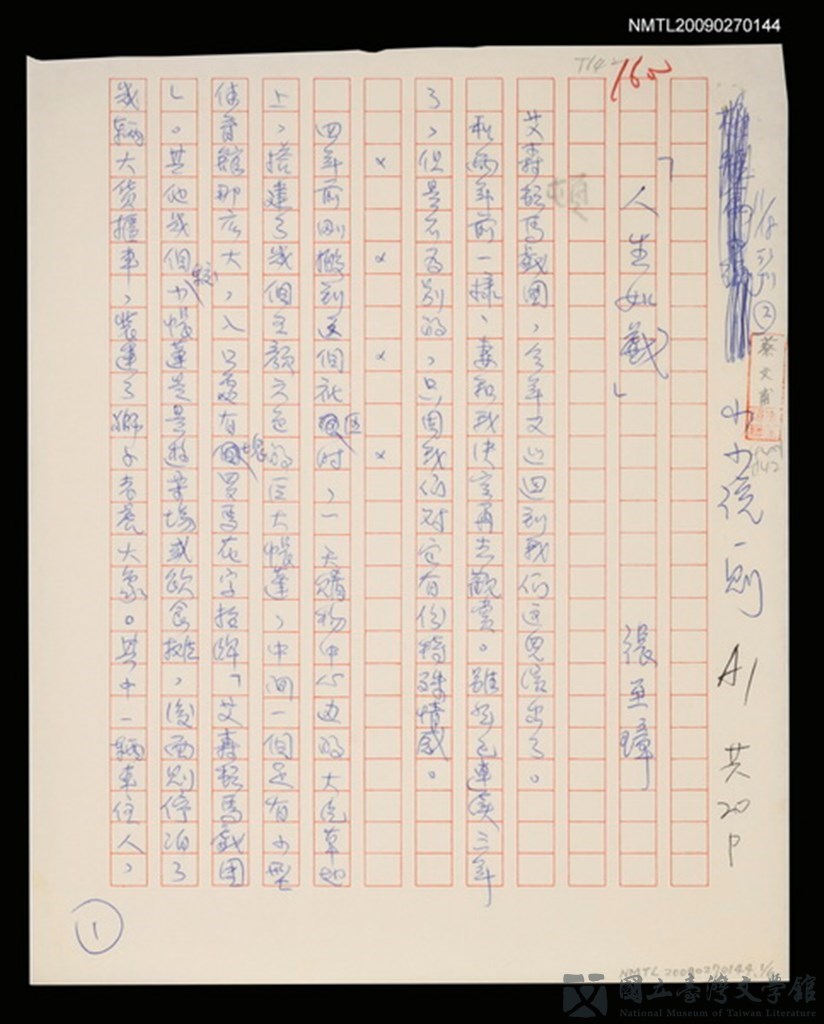 NMTL20090270144
小小說一則 A1 共20P
蔡文甫
160
「人生如戲」 張至璋
艾森豪馬戲團，今年又巡迴到我們這兒演出了。
和兩年前一樣，妻和我決定再去觀賞。雖然已連演三年
了，但是不易別的，只因我們對它有份特殊情感。
× × × ×
四年前剛搬到這個社區時，一天購物中心边的大片草地
上，搭建了幾個五顏六色的巨大帳蓬，中間一個足有小型
体育館那広大，入口處有塊羅馬花字招牌「艾森豪馬戲團
」。其他幾個較小帳蓬是遊樂場或飲食攤，後面則停泊了
幾輛大貨櫃車，裝運了獅子老虎大象。其中一輛車住人，
1
NMTL20090270144
國立臺灣文學館
National Museum of Taiwan Literature